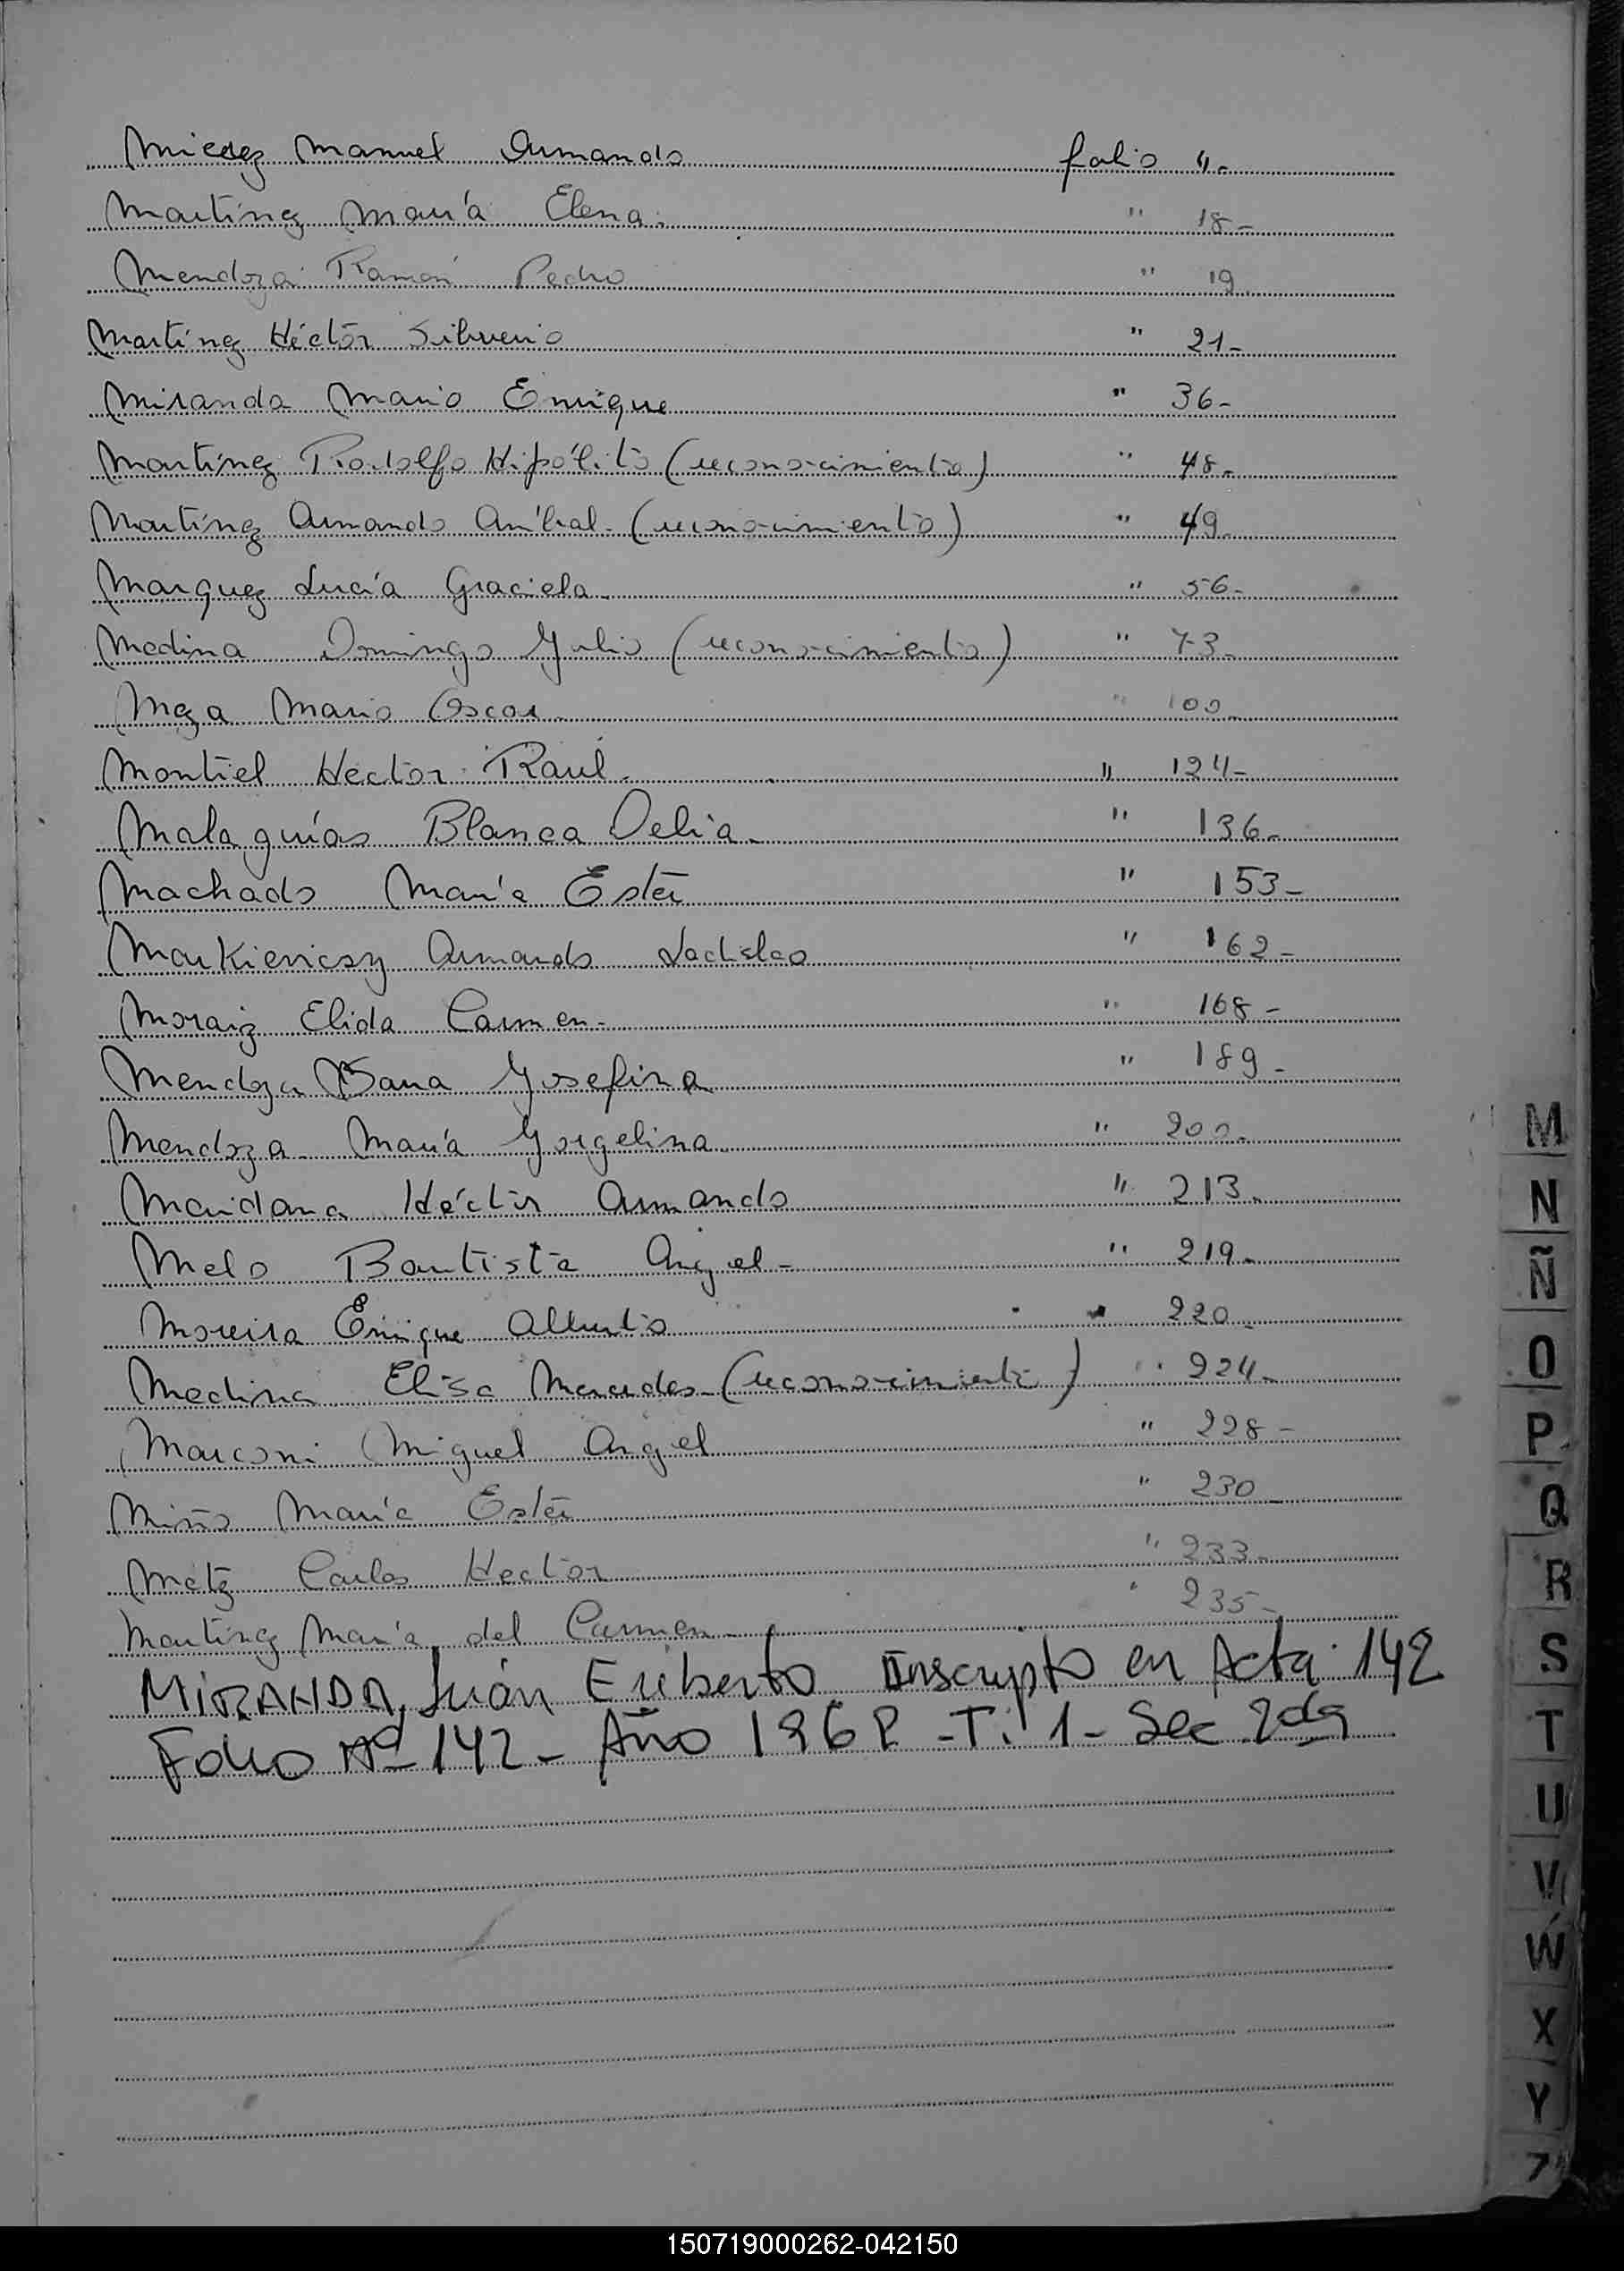 Miedez Manuel Armando folio 4.-
Martínez María Elena. " 18-
Mendoza Ramón Pedro " 19.
Martínez Héctor Silverio " 21-
Miranda Mario Enrique " 36-
Martínez Rodolfo Hipólito (reconocimiento) " 48-
Martínez Armando Aníbal-(reconocimiento) " 49-
Marquez Lucía Graciela- " 56-
Medina Domingo Julio (reconocimiento) " 73-
Meza Mario Oscar- " 100-
Montiel Hector Raúl- " 124-
Malaguías Blanca Delia- " 136-
Machado María Ester " 153-
Markievicsy Armando Ladislao " 162-
Moraiz Elida Carmen- " 168-
Mendoza Juana Josefina " 189-
Mendoza María Jorgelina " 200-
Maidana Héctor Armando " 213-
Melo Bautista Angel- " 219-
Moreira Enrique Alberto " 220-
Medina Elisa Mercedes-(reconocimiento) " 224-
Marconi Miguel Angel " 228-
Miño María Ester " 230-
Metz Carlos Hector " 233-
Martínez María del Carmen- " 235-
MIRANDA, Juán Eriberto Inscripto en Acta 142
Folio Nº 142- Año 1962 -T: 1- Sec 2da
M
N
Ñ
O
P
Q
R
S
T
U
V
W
X
Y
Z
150719000262-042150